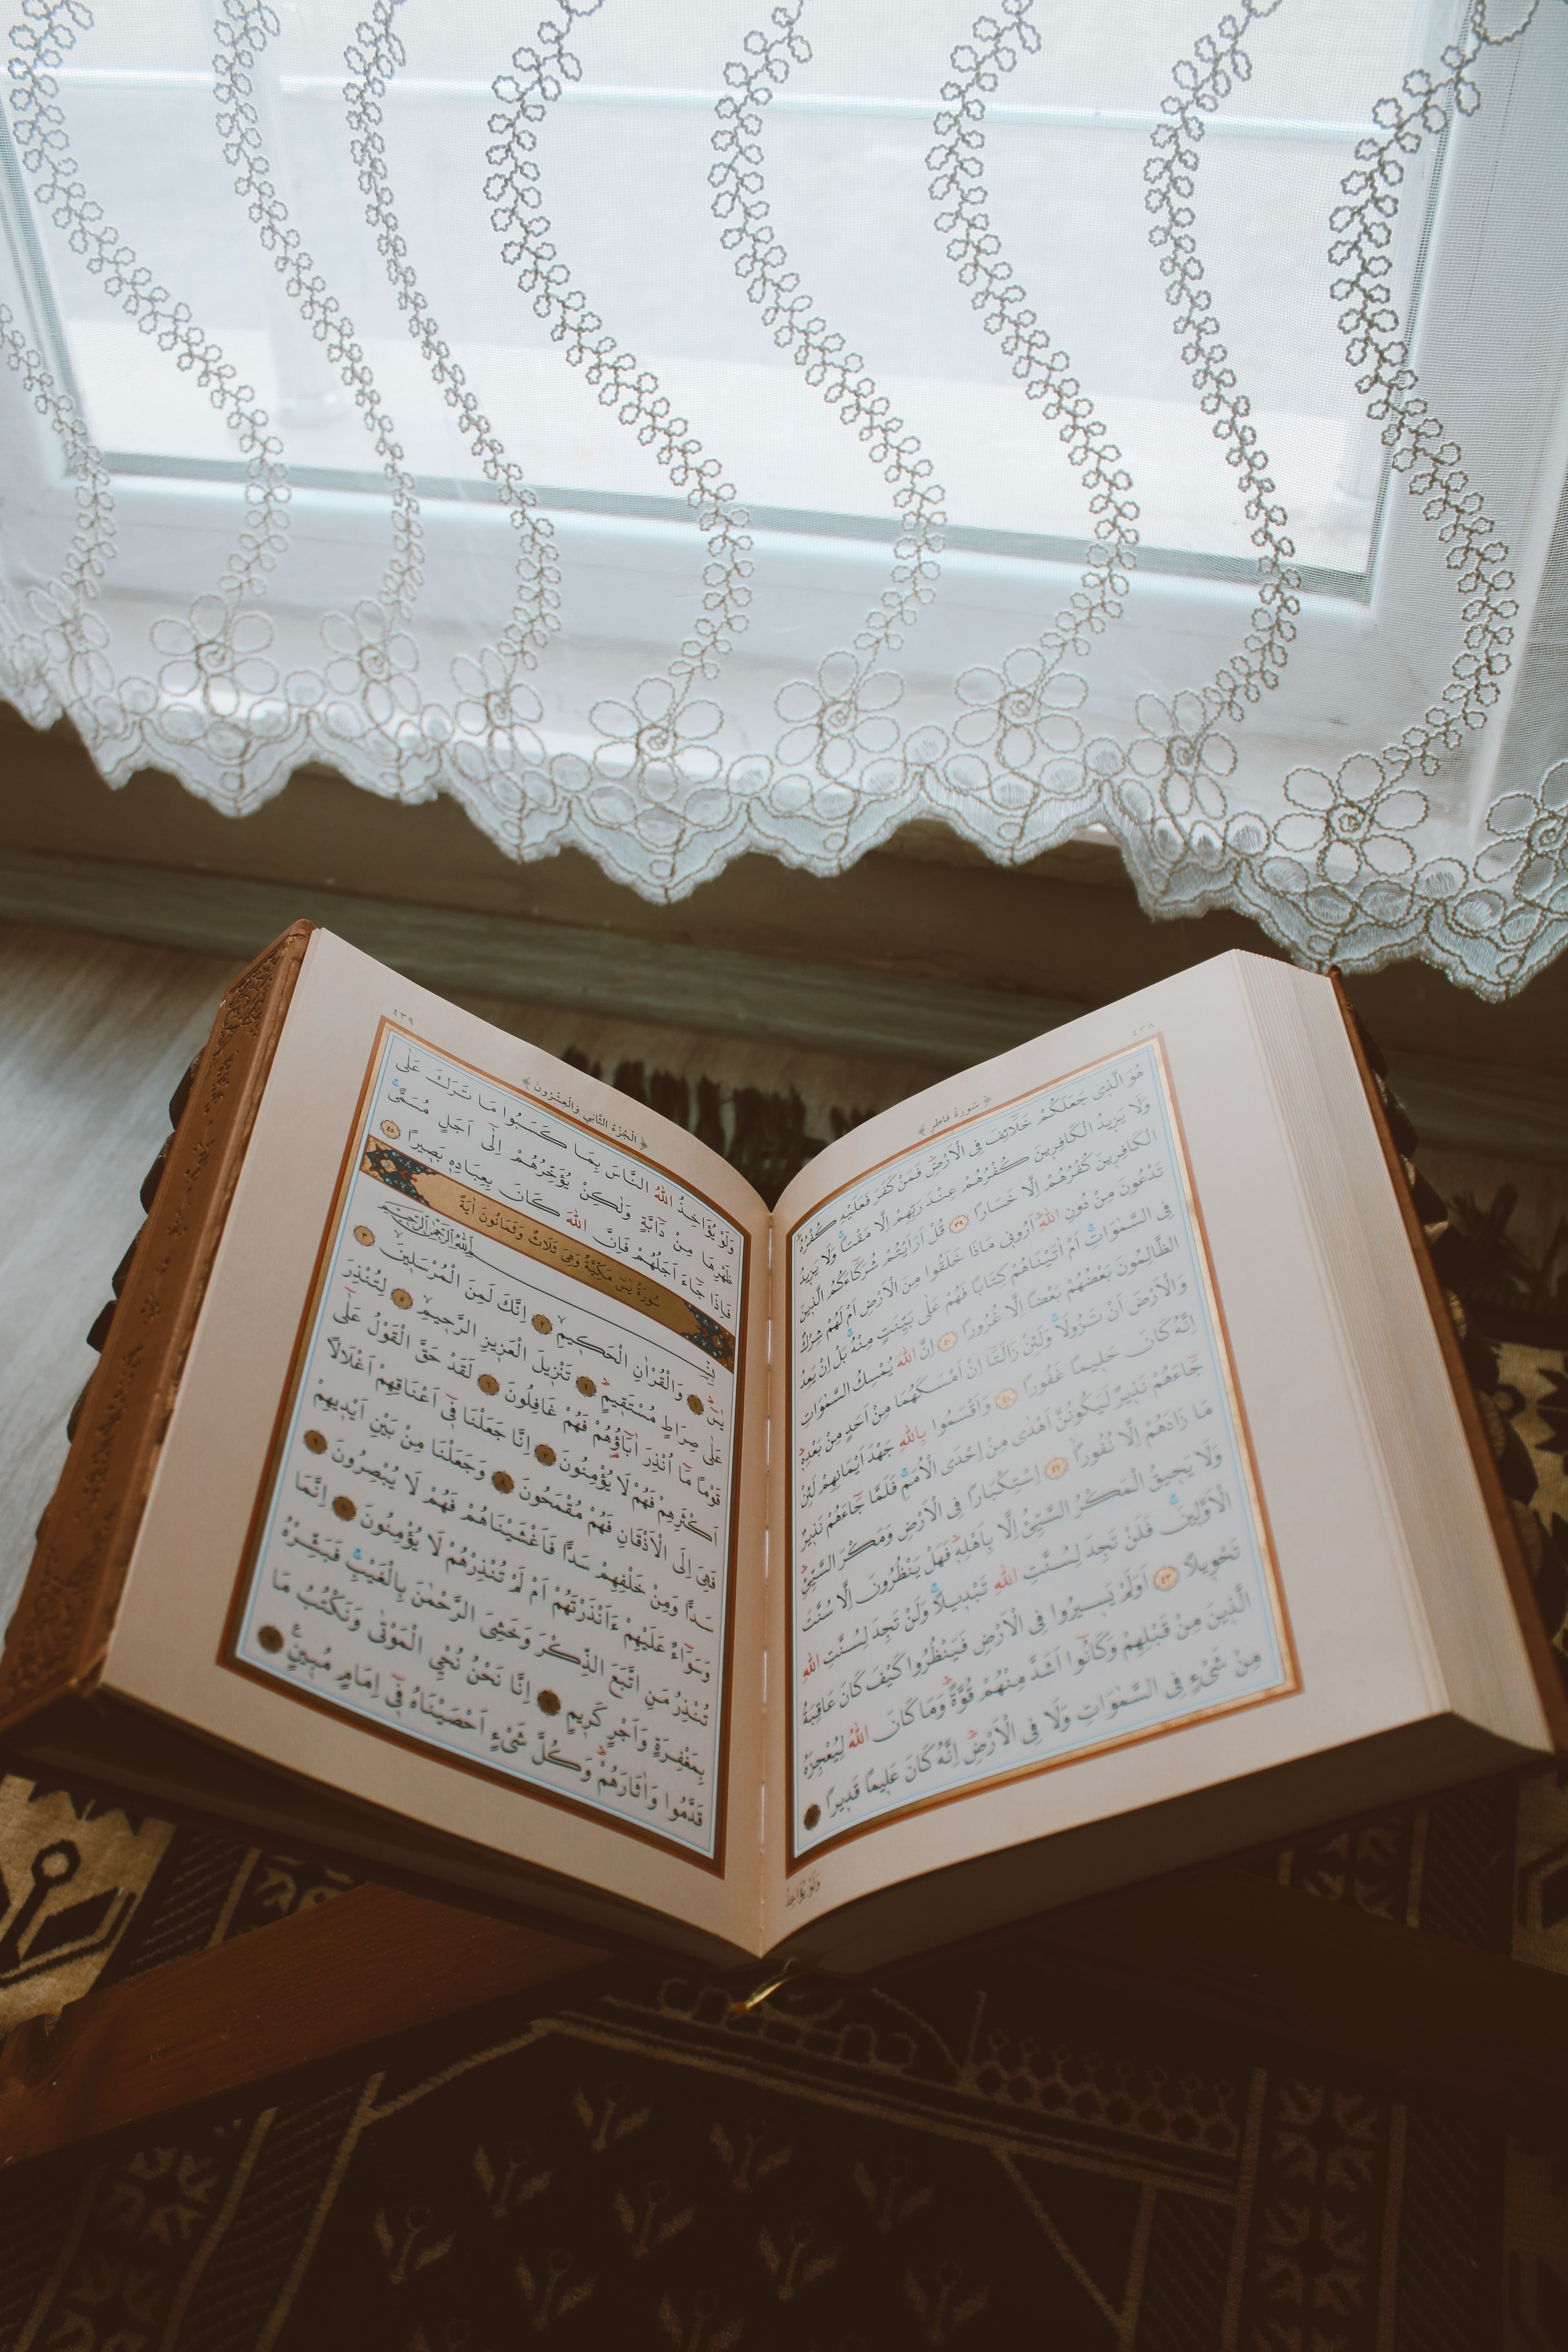 ٤٣٨
سُورَةُ فَاطِرٍ
هُوَ الَّذ۪ى جَعَلَكُمْ خَلَٓائِفَ فِى الْاَرْضِۜ فَمَنْ كَفَرَ فَعَلَيْهِ كُفْرُهُۜ
وَلَا يَز۪يدُ الْكَافِر۪ينَ كُفْرُهُمْ عِنْدَ رَبِّهِمْ اِلَّا مَقْتًاۚ وَلَا يَز۪يدُ
الْكَافِر۪ينَ كُفْرُهُمْ اِلَّا خَسَارًا ٣٩ قُلْ اَرَاَيْتُمْ شُرَكَٓاءَكُمُ الَّذ۪ينَ
تَدْعُونَ مِنْ دُونِ اللّٰهِۜ اَرُون۪ى مَاذَا خَلَقُوا مِنَ الْاَرْضِ اَمْ لَهُمْ شِرْكٌ
فِى السَّمٰوَاتِۚ اَمْ اٰتَيْنَاهُمْ كِتَابًا فَهُمْ عَلٰى بَيِّنَتٍ مِنْهُۚ بَلْ اِنْ يَعِدُ
الظَّالِمُونَ بَعْضُهُمْ بَعْضًا اِلَّا غُرُورًا ٤٠ اِنَّ اللّٰهَ يُمْسِكُ السَّمٰوَاتِ
وَالْاَرْضَ اَنْ تَزُولَاۚ وَلَئِنْ زَالَتَٓا اِنْ اَمْسَكَهُمَا مِنْ اَحَدٍ مِنْ بَعْدِه۪ۜ
اِنَّهُ كَانَ حَل۪يمًا غَفُورًا ٤١ وَاَقْسَمُوا بِاللّٰهِ جَهْدَ اَيْمَانِهِمْ لَئِنْ
جَٓاءَهُمْ نَذ۪يرٌ لَيَكُونُنَّ اَهْدٰى مِنْ اِحْدَى الْاُمَمِۚ فَلَمَّا جَٓاءَهُمْ نَذ۪يرٌ
مَا زَادَهُمْ اِلَّا نُفُورًاۙ ٤٢ اِسْتِكْبَارًا فِى الْاَرْضِ وَمَكْرَ السَّيِّئِۜ
وَلَا يَح۪يقُ الْمَكْرُ السَّيِّئُ اِلَّا بِاَهْلِه۪ۜ فَهَلْ يَنْظُرُونَ اِلَّا سُنَّتَ
الْاَوَّل۪ينَۚ فَلَنْ تَجِدَ لِسُنَّتِ اللّٰهِ تَبْد۪يلًاۚ وَلَنْ تَجِدَ لِسُنَّتِ اللّٰهِ
تَحْو۪يلًا ٤٣ اَوَلَمْ يَس۪يرُوا فِى الْاَرْضِ فَيَنْظُرُوا كَيْفَ كَانَ عَاقِبَةُ
الَّذ۪ينَ مِنْ قَبْلِهِمْ وَكَانُٓوا اَشَدَّ مِنْهُمْ قُوَّةًۜ وَمَا كَانَ اللّٰهُ لِيُعْجِزَهُ
مِنْ شَىْءٍ فِى السَّمٰوَاتِ وَلَا فِى الْاَرْضِۜ اِنَّهُ كَانَ عَل۪يمًا قَد۪يرًا
وَلَوْ يُؤَاخِذُ
٤٣٩
اَلْجُزْءُ الثَّانِي وَالْعِشْرُونَ
وَلَوْ يُؤَاخِذُ اللّٰهُ النَّاسَ بِمَا كَسَبُوا مَا تَرَكَ عَلٰى
ظَهْرِهَا مِنْ دَٓابَّةٍ وَلٰكِنْ يُؤَخِّرُهُمْ اِلٰٓى اَجَلٍ مُسَمًّىۚ
فَاِذَا جَٓاءَ اَجَلُهُمْ فَاِنَّ اللّٰهَ كَانَ بِعِبَادِه۪ بَص۪يرًا ٤٥
سُورَةُ يٰسٓ مَكِّيَّةٌ وَهِيَ ثَلَاثٌ وَثَمَانُونَ اٰيَةً
بِسْمِ اللّٰهِ الرَّحْمٰنِ الرَّح۪يمِ
يٰسٓۜ ١ وَالْقُرْاٰنِ الْحَك۪يمِۙ ٢ اِنَّكَ لَمِنَ الْمُرْسَل۪ينَۙ ٣
عَلٰى صِرَاطٍ مُسْتَق۪يمٍۜ ٤ تَنْز۪يلَ الْعَز۪يزِ الرَّح۪يمِۙ ٥ لِتُنْذِرَ
قَوْمًا مَٓا اُنْذِرَ اٰبَٓاؤُ۬هُمْ فَهُمْ غَافِلُونَ ٦ لَقَدْ حَقَّ الْقَوْلُ عَلٰٓى
اَكْثَرِهِمْ فَهُمْ لَا يُؤْمِنُونَ ٧ اِنَّا جَعَلْنَا ف۪ٓى اَعْنَاقِهِمْ اَغْلَالًا
فَهِىَ اِلَى الْاَذْقَانِ فَهُمْ مُقْمَحُونَ ٨ وَجَعَلْنَا مِنْ بَيْنِ اَيْد۪يهِمْ
سَدًّا وَمِنْ خَلْفِهِمْ سَدًّا فَاَغْشَيْنَاهُمْ فَهُمْ لَا يُبْصِرُونَ ٩
وَسَوَٓاءٌ عَلَيْهِمْ ءَاَنْذَرْتَهُمْ اَمْ لَمْ تُنْذِرْهُمْ لَا يُؤْمِنُونَ ١٠ اِنَّمَا
تُنْذِرُ مَنِ اتَّبَعَ الذِّكْرَ وَخَشِىَ الرَّحْمٰنَ بِالْغَيْبِۚ فَبَشِّرْهُ
بِمَغْفِرَةٍ وَاَجْرٍ كَر۪يمٍ ١١ اِنَّا نَحْنُ نُحْىِ الْمَوْتٰى وَنَكْتُبُ مَا
قَدَّمُوا وَاٰثَارَهُمْۜ وَكُلَّ شَىْءٍ اَحْصَيْنَاهُ ف۪ٓى اِمَامٍ مُب۪ينٍ۟